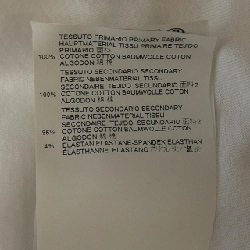 TESSUTO PRIMARIO PRIMARY FABRIC
HAUPTMATERIAL TISSU PRIMAIRE TEJIDO
PRIMARIO
100% COTONE COTTON BAUMWOLLE COTON
ALGODON 綿 棉
TESSUTO SECONDARIO SECONDARY
FABRIC NEBENMATERIAL TISSU
SECONDAIRE TEJIDO SECUNDARIO
100% COTONE COTTON BAUMWOLLE COTON
ALGODON 綿 棉
TESSUTO SECONDARIO SECONDARY
FABRIC NEBENMATERIAL TISSU
SECONDAIRE TEJIDO SECUNDARIO
COTONE COTTON BAUMWOLLE COTON
ALGODON 綿 棉
4% ELASTAN ELASTANE-SPANDEX ELASTHAN
ELASTHANNE ELASTANO